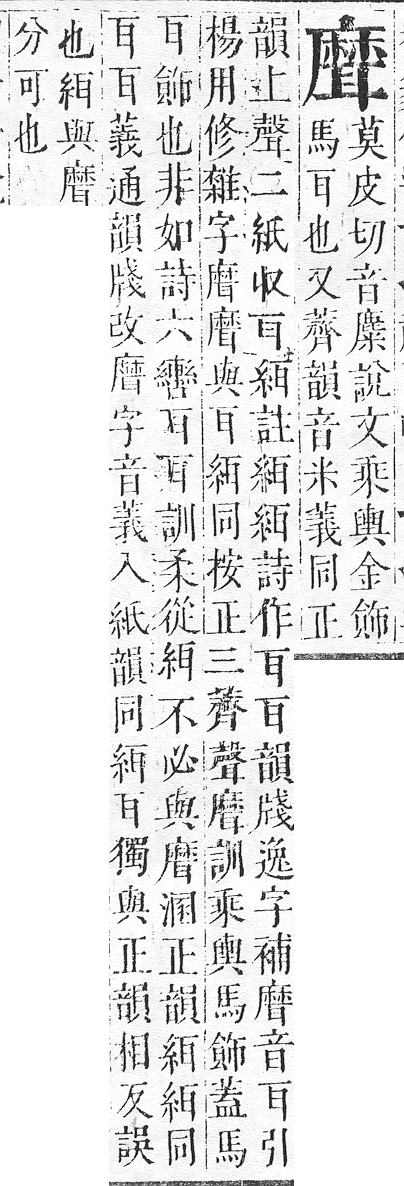 𦗕
莫皮切音麋說文乘輿金飾
馬耳也又薺韻音米義同正
韻上聲二紙收耳䋙註䋙䋙詩作耳耳韻牋逸字補𦗕音耳引
楊用修雜字𦗕𦗕與耳䋙同按正三薺聲𦗕訓乘輿馬飾蓋馬
耳飾也非如詩六轡耳耳訓柔從䋙不必與𦗕溷正韻䋙䋙同
耳耳義通韻牋改𦗕字音義入紙韻同䋙耳獨與正韻相反誤
也䋙與𦗕
分可也